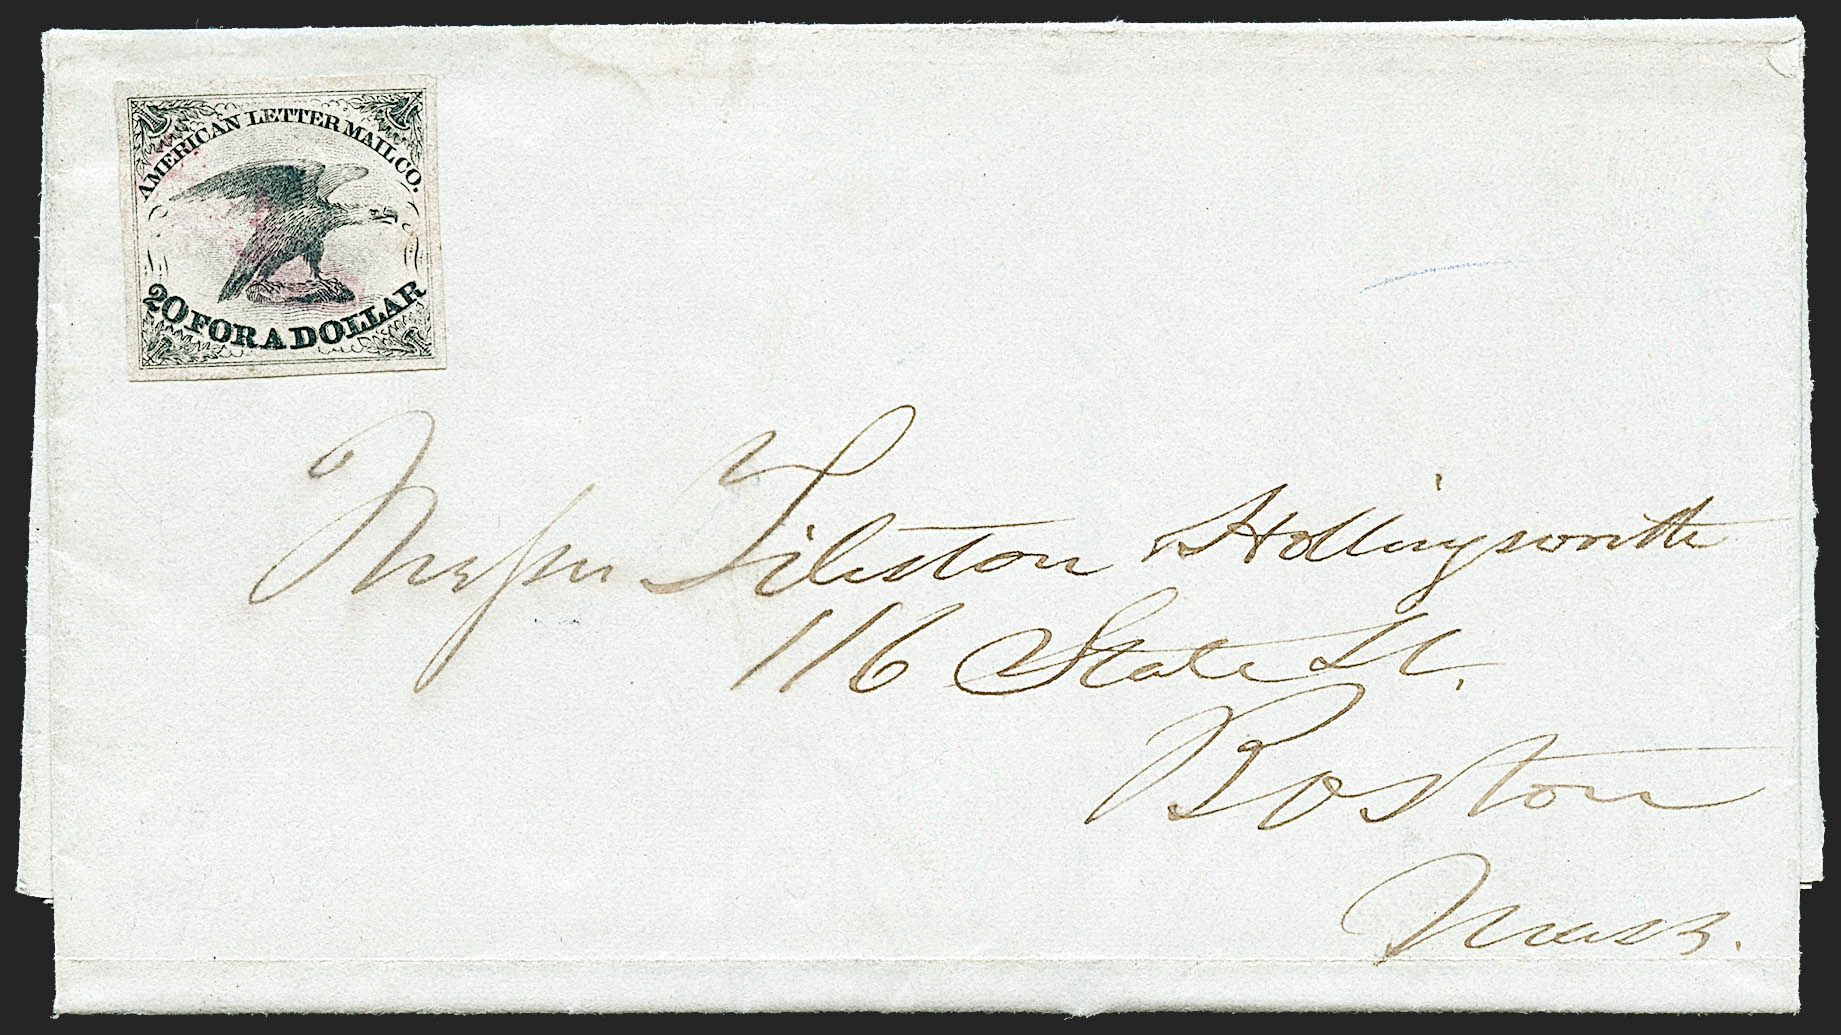 AMERICAN LETTER MAIL CO.
20 FOR A DOLLAR
Messrs Tileston & Hollingsworth
116 State St.
Boston
Mass.